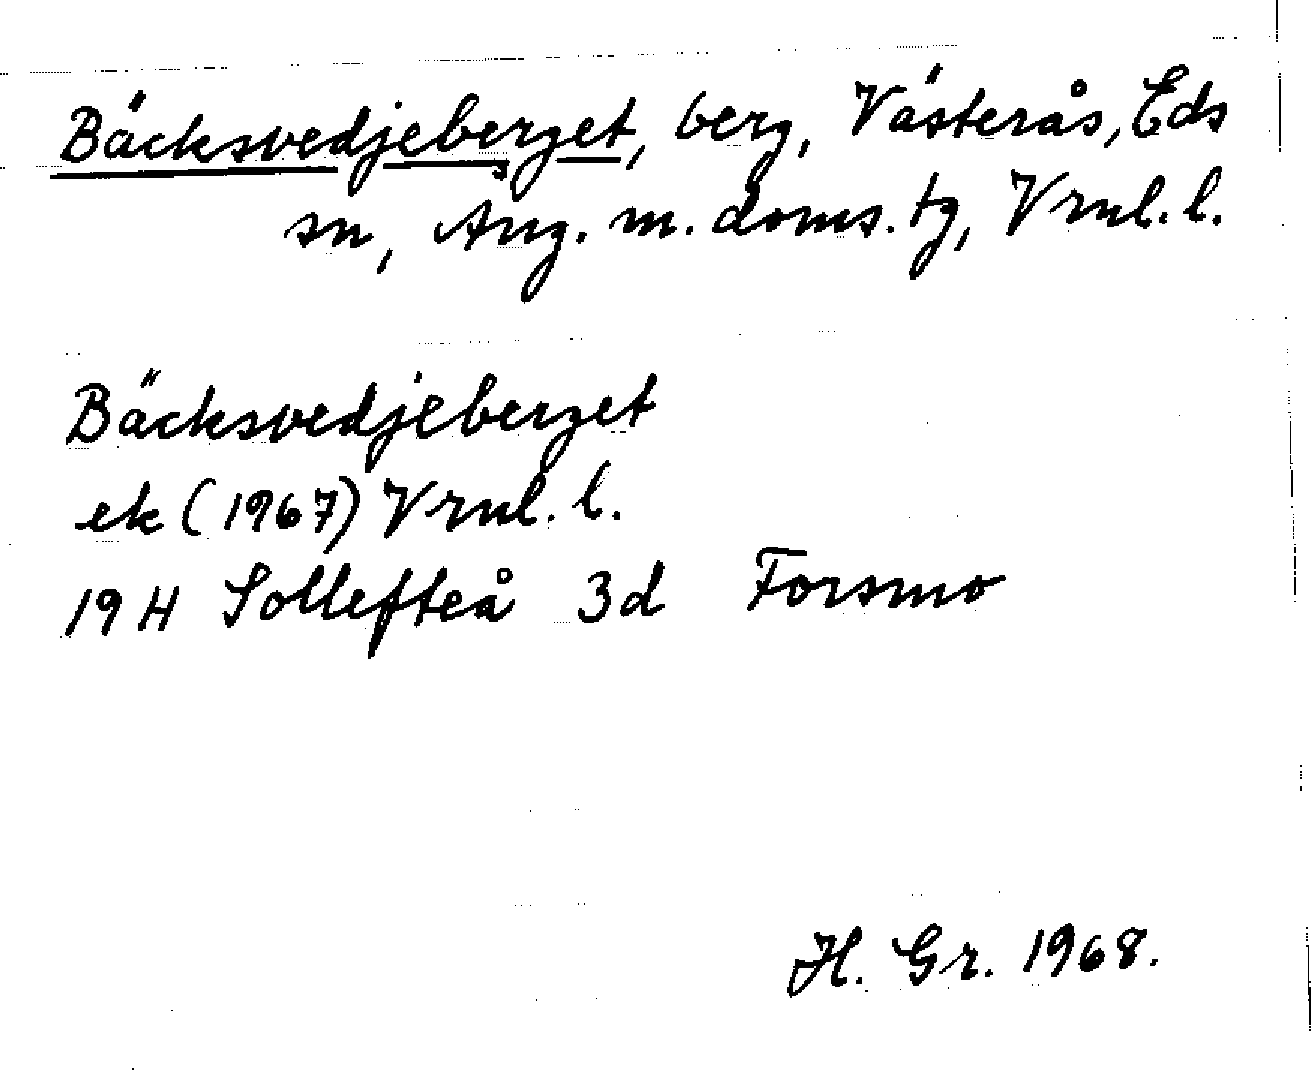 Bäcksvedjeberget, berg, Västerås, Eds
sn, Ång. m. doms. tg, Vrnl. l.
Bäcksvedjeberget
ek (1967) Vrnl. l.
19 H Sollefteå 3d Forsmo
H. Gr. 1968.